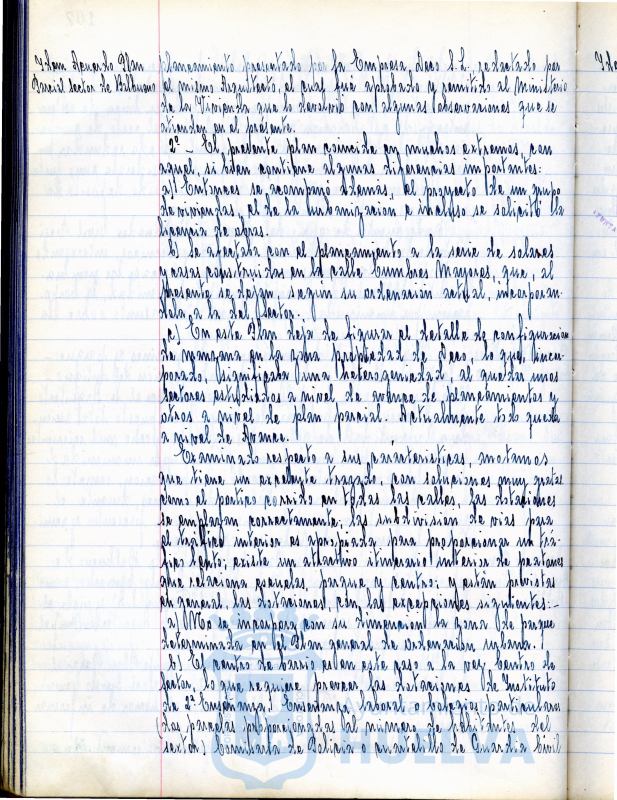 Idem Acuerdo Plan
Parcial Sector de Balbueno
planeamiento presentado por la Empresa Daco S.L. redactado por
el mismo Arquitecto, el cual fué aprobado y remitido al Ministerio
de la Vivienda que lo devolvió con algunas observaciones que se
atienden en el presente.
2º - El presente plan coincide en muchos extremos, con
aquel, si bien contiene algunas diferencias importantes:
a) Entonces se acompañó además, el proyecto de un grupo
de viviendas, el de la urbanización e incluso se solicitó la
licencia de obras.
b) Se afectaba con el planeamiento a la serie de solares
y casas construidas en la calle Cumbres Mayores, que, al
presente se dejan, según su ordenación actual, incorporan-
dola a la del Sector.
c) En este Plan deja de figurar el detalle de configuración
de manzana en la zona propiedad de Daco, lo que, incor-
porado, significaba una heterogeneidad, al quedar unos
sectores estudiados a nivel de avance de planeamientos y
otros a nivel de plan parcial. Actualmente todo queda
a nivel de Avance.
Examinado respecto a sus características, anotamos
que tiene un excelente trazado, con soluciones muy gratas
como el portico corrido en todas las calles, las dotaciones
se emplazan correctamente, las subdivisión de vias para
el tráfico interior es apropiada para proporcionar un trá-
fico lento; existe un atractivo itinerario interior de peatones
que relaciona escuelas, parque y centro; y están previstas
en general, las dotaciones, con las excepciones siguientes:-
a) No se incorpora con su dimensión la zona de parque
determinada en el Plan general de ordenación urbana.
b) El centro de barrio es en este caso a la vez, Centro de
Sector, lo que requiere proveer, las dotaciones de Instituto
de 2ª Enseñanza, Enseñanza laboral o colegios particulares
(las parcelas proporcionadas al número de habitantes del
sector) Comisaría de Policía o cuartelillo de Guardia Civil
HUELVA